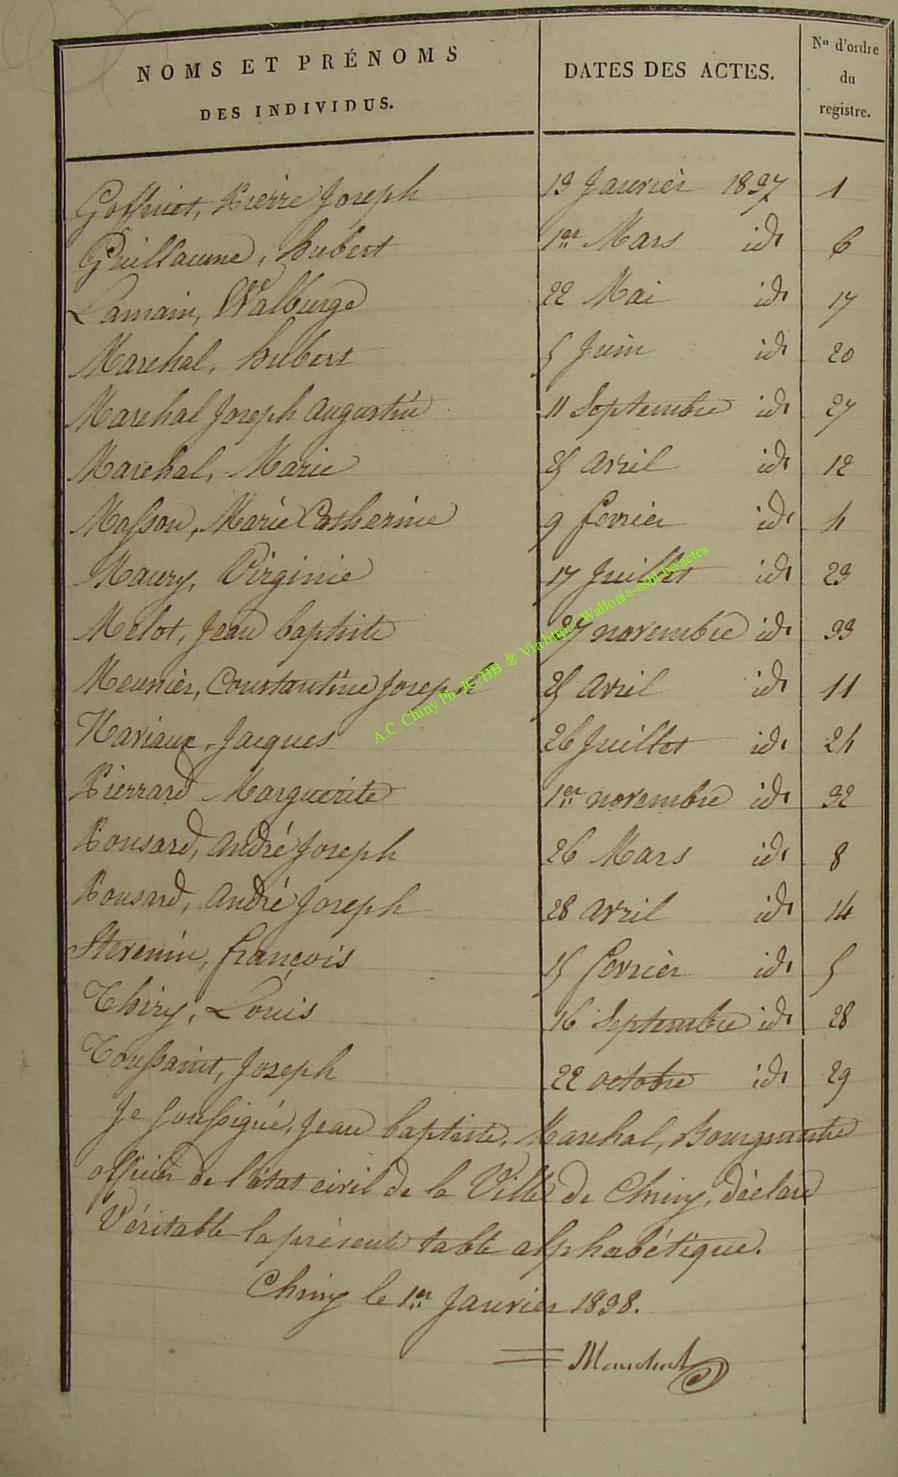 NOMS ET PRÉNOMS
DES INDIVIDUS.
DATES DES ACTES.
Nº d'ordre
du
registre.
Goffinet, Pierre Joseph 13 Janvier 1837 1
Guillaume, hubert 1er Mars id. 6
Lamain, Walburge 22 Mai id. 17
Marchal, hubert 5 Juin id. 20
Marchal Joseph Augustin 11 Septembre id. 27
Marchal, Marie 25 avril id. 12
Masson, Marie Catherine 9 fevrier id. 4
Maury, Virginie 17 Juillet id. 23
Melot, Jean baptiste 27 novembre id. 33
Meunier, Constantine Joseph 25 avril id. 11
Jacques 26 Juillet id. 24
Pierrard Marguerite 1er novembre id. 32
Ponsard, André Joseph 26 Mars id. 8
Ponsard, André Joseph 28 avril id. 14
Stevenin, françois 15 fevrier id. 5
Thiry, Louis 16 Septembre id. 28
Toussaint, Joseph 22 octobre id. 29
Je soussigné, Jean baptiste, Marchal, Bourgmestre
officier de l'état civil de la Ville de Chiny, déclare
Véritable la présente table alphabétique.
Chiny le 1er Janvier 1838.
Marchal
A.C. Chiny Ph JC/HB ® Via